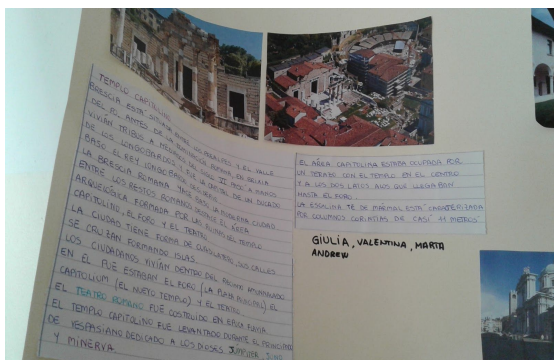 TEMPLO CAPITOLINO
BRESCIA ESTÁ SITUADA ENTRE LOS PREALPES Y EL VALLE
DEL PO. ANTES DE LA DOMINACIÓN ROMANA, EN BRESCIA
VIVÍAN TRIBUS
DE LOS LONGOBARDOS Y FUE LA CAPITAL DE UN DUCADO
BAJO EL REY LONGOBARDO
LA BRESCIA ROMANA YACE BAJO LA MODERNA CIUDAD
ENTRE LOS RESTOS ROMANOS DESTACA EL ÁREA
ARQUEOLÓGICA FORMADA POR LAS RUINAS DEL TEMPLO
CAPITOLINO, EL FORO Y EL TEATRO
LA CIUDAD TIENE FORMA DE CUADRADO, SUS CALLES
SE CRUZAN FORMANDO ISLAS.
LOS CIUDADANOS VIVÍAN DENTRO DEL RECINTO AMURALLADO
EN EL QUE ESTABAN EL FORO (LA PLAZA PRINCIPAL) EL
CAPITOLIUM (EL NUEVO TEMPLO) Y EL TEATRO.
EL TEATRO ROMANO FUE COSTRUIDO EN EPOCA FLAVIA.
EL TEMPLO CAPITOLINO FUE LEVANTADO DURANTE EL PRINCIPADO
DE VESPASIANO DEDICADO A LOS DIOSES JÚPITER, JUNO
Y MINERVA.
EL ÁREA CAPITOLINA ESTABA OCUPADA POR
UN TERRAZO CON EL TEMPLO EN EL CENTRO
Y A LOS DOS LATOS ALOS QUE LLAGABAN
HASTA EL FORO.
LA ESCALINA TE DE MARMOL ESTÁ CARACTERIZADA
POR COLUMNOS CORINTIAS DE CASI 11 METROS
GIULIA, VALENTINA, MARTA
ANDREW